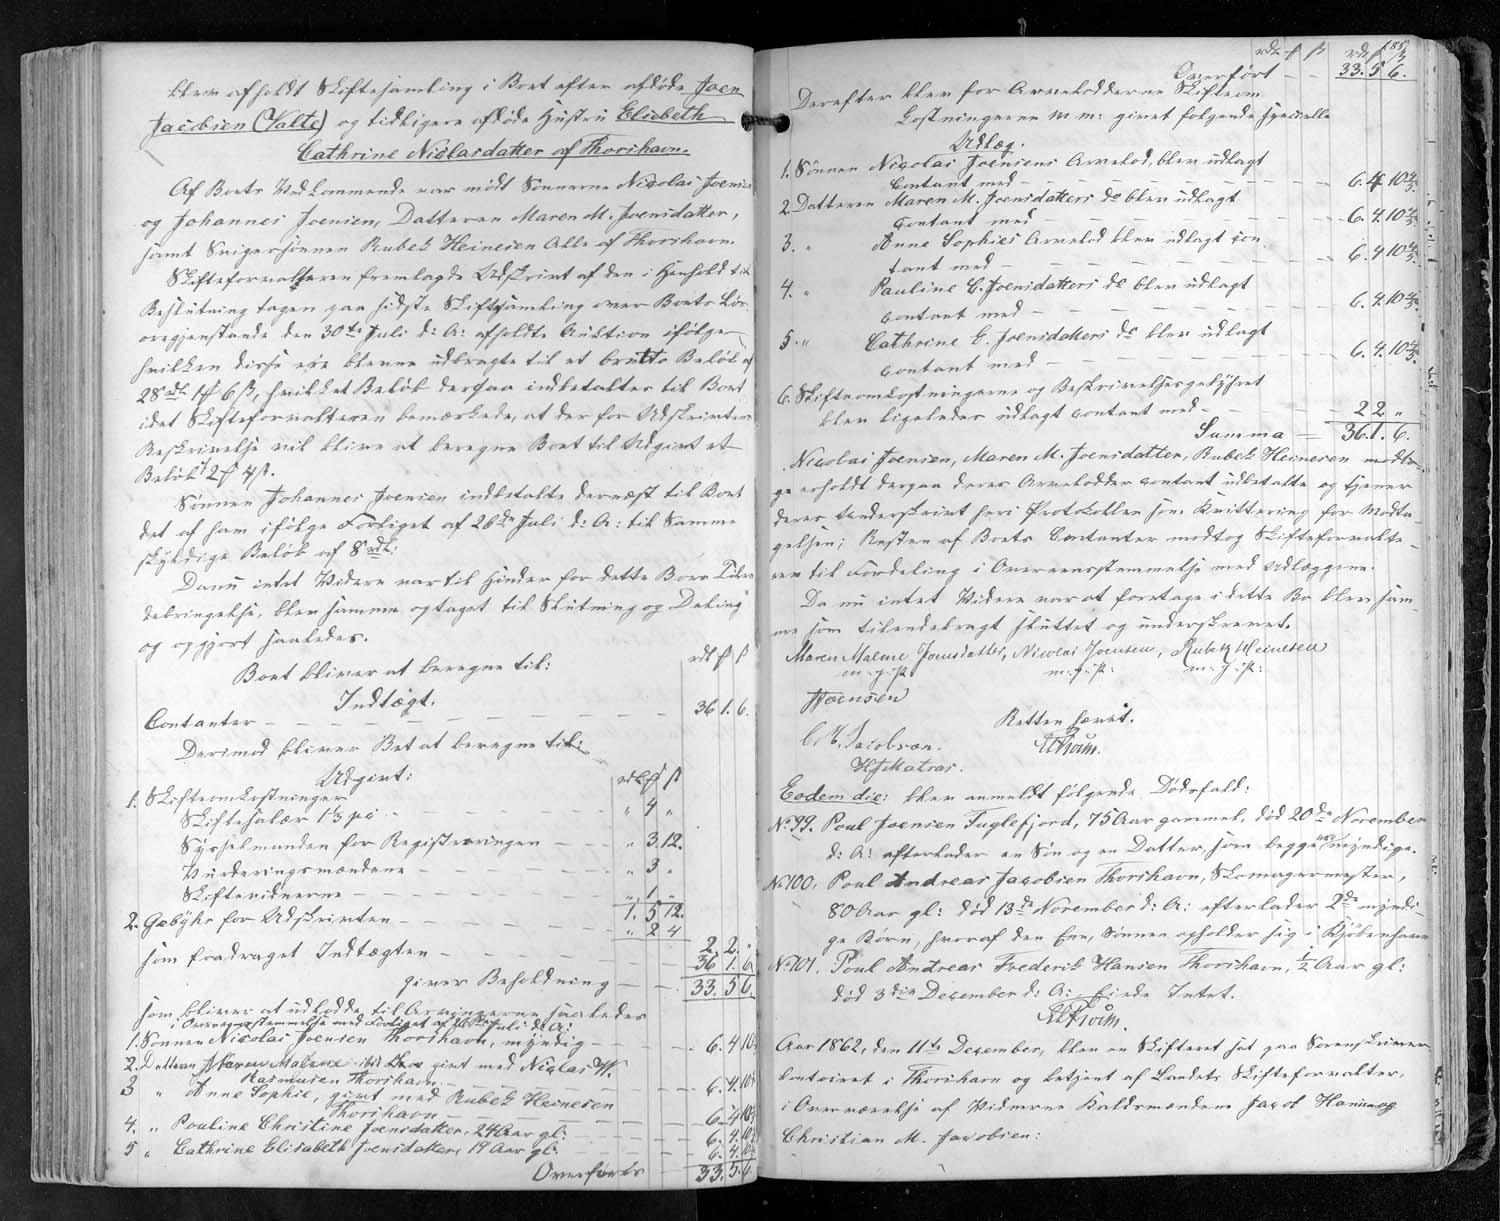 blev afholdt Skiftesamling i Boet efter afdøde Joen
Jacobsen (Valte) og tidligere afdøde Hustru Elisebeth
Cathrine Niclasdatter af Thorshavn.
Af Boets Vedkommende var mødt Sønnerne Nicolai Joensen
og Johannes Joensen, Datteren Maren M. Joensdatter,
samt Svigersønnen Rubek Heinesen Alle af Thorshavn.
Skifteforvalteren fremlagde Udskrivt af den i Henhold til
Beslutning tagen paa sidste Skiftesamling over Boets Løs-
øregjenstande den 30te Juli d: A: afholdte Auktion ifølge
hvilken disse ere blevne udbragte til et brutto Beløb af
28 rdl. 1 f 6 ß, hvilket Beløb derpaa indbetaltes til Boet
idet Skifteforvalteren bemærkede, at der for Udskrivtens
Beskrivelse vil blive at beregne Boet til Udgivt et
Beløb 2 f 4 ß.
Sønnen Johannes Joensen indbetalte dernæst til Boet
det af ham ifølge Forliget af 26de Juli d: A: til Samme
skyldige Beløb af 8 rdl:
Da nu intet Videre var til Hinder for dette Boes Tilen-
debringelse, blev samme optaget til Slutning og Deling
og opgjort saaledes.
Boet bliver at beregne til:
rdl f ß
Indtægt.
Contanter 36 1. 6.
Derimod bliver Boet at beregne til:
Udgivt: rdl f ß
1. Skifteomkostninger
Skiftesalær 1 3 pC " 4 "
Sysselmanden for Registreringen " 3. 12.
Vurderingsmændene " 3 "
Skiftevidnerne " 1 "
1. 5 12.
2. Gebyhr for Udskrivten " 2 4
2. 2. "
som fradraget Indtægten 36 1. 6
giver Beholdning 33. 5 6.
som bliver at udlodde til Arvingerne saaledes
i Overensstemmelse med Forliget af 26de Juli d: A:
1. Sønnen Nicolai Joensen Thorshavn, myndig 6. 4 10
2. Datteren Maren Malene givt med Niclas
Rasmusen Thorshavn 6. 4. 10
3 " Anne Sophie, givt med Rubek Heinesen
Thorshavn 6. 4 10
4. " Pouline Christine Joensdatter, 24 Aar gl: 6. 4. 10
5 " Cathrine Elisabeth Joensdatter, 19 Aar gl: 6. 4. 10
Overføres 33. 5. 6
188
rdl f ß rdl f ß
Overført 33. 5 6.
Derefter blev for Arvelodderne Skifteom-
kostningerne m m: givet følgende specielle
Udlæg.
1. Sønnen Nicolai Joensens Arvelod, blev udlagt
contant med 6. 4 10 4/5
2. Datteren Maren M. Joensdatters do blev udlagt
contant med 6. 4. 10 4/5
3. " Anne Sophies Arvelod blev udlagt con-
tant med 6. 4 10 4/5
4. " Pauline C. Joensdatters do blev udlagt
contant med 6. 4. 10 4/5
5 " Cathrine E. Joensdatters do blev udlagt
contant med 6. 4. 10 4/5
6. Skifteomkostningerne og Beskrivelsesgebyhret
blev ligeledes udlagt contant med 2 2 "
Summa 36. 1. 6.
Nicolai Joensen, Maren M. Joensdatter, Rubek Heinesen modto-
ge erholdt derpaa deres Arvelodder contant udbetalte og tjener
deres Underskrivt heri Protokollen som Kvittering for Modta-
gelsen; Resten af Boets Contanter modtog Skifteforvalte-
ren til Fordeling i Overensstemmelse med Udlæggene.
Da nu intet Videre var at foretage i dette Bo blev sam-
me som tilendebragt sluttet og underskrevet.
Maren Malene Joensdatter, Nicolai Joensen, Rubek Heinesen
m. f. P. m. f. P: m. f. P:
Joensen
Retten hævet.
C M. Jacobsen.
HTholm.
HJMatras.
Eodem die: blev anmeldt følgende Dødsfald:
No 99. Poul Joensen Fuglefjord, 75 Aar gammel, død 20de November
d: A: efterlader en Søn og en Datter, som begge ere myndige.
No 100. Poul Andreas Jacobsen Thorshavn, Skomagermester,
80 Aar gl: død 13de November d: A: efterlader 2de myndi-
ge Børn, hvoraf den Ene, Sønnen opholder sig i Kjøbenhavn
No 101. Poul Andreas Frederik Hansen Thorshavn, 1/2 Aar gl:
død 3die December d: A: Eiede Intet.
HTholm.
Aar 1862, den 11te December, blev en Skifteret sat paa Sorenskriver
kontoiret i Thorshavn og betjent af Landets Skifteforvalter,
i Overværelse af Vidnerne Kaldsmændene Jacob Hanne og
Christian M. Jacobsen: